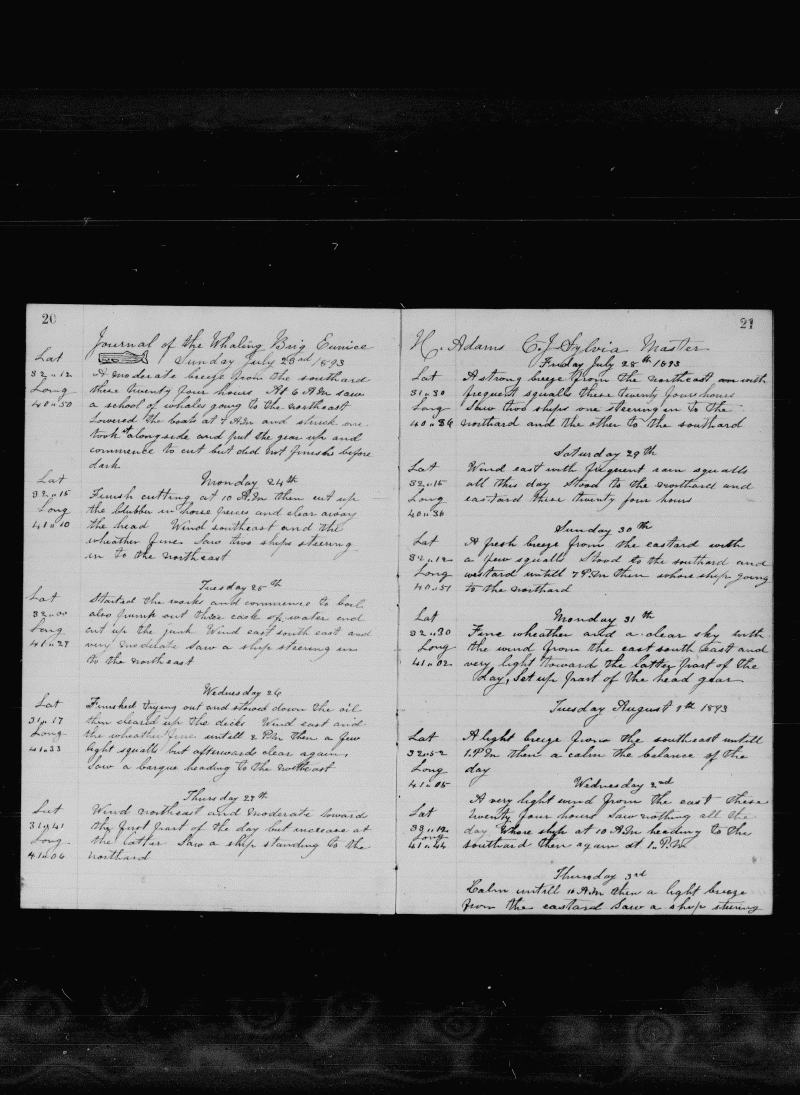 20
Journal of the Whaling Brig Eunice
Sunday July 23rd 1893
Lat 32 " 12
Long 40 " 50
A moderate breeze from the southard
these twenty four hours At 6 A.M saw
a school of whales going to the northeast
Lowered the boats at 7 A.M and struck one
took it alongside and put the gear up and
commence to cut but did not finishe before
dark
Monday 24th
Lat 32 " 15
Long 41 " 10
Finish cutting at 10 A.M then cut up
the blubber in horse peices and clear away
the head Wind southeast and the
wheather fine Saw two ships steering
in to the northeast
Tuesday 25th
Lat 32 " 00
Long 41 " 29
Started the works and commence to boil
also pump out three cask of water and
cut up the junk Wind east south east and
very moderate Saw a ship steering in
to the northeast
Wednesday 26
Lat 31 " 17
Long 41 " 33
Finished trying out and stowed down the oil
then cleard up the decks Wind east and
the wheather fine untill 2 P.M then a few
light squalls but afterwards clear again
Saw a barque heading to the northeast
Thursday 27th
Lat 31 " 41
Long 41 " 06
Wind northeast and moderate towards
the first part of the day but increase at
the latter Saw a ship standing to the
northard
21
H. Adams C. J. Sylvia Master
Friday July 28th 1893
Lat 31 " 30
Long 40 " 36
A strong breeze from the northeast with
frequent squalls these twenty four hours
Saw two ships one steering in to the
northard and the other to the southard
Saturday 29th
Lat 32 " 15
Long 40 " 36
Wind east with frequent rain squalls
all this day Stood to the northard and
eastard these twenty four hours
Sunday 30th
Lat 32 " 12
Long 40 " 51
A fresh breeze from the eastard with
a few squalls Stood to the southard and
westard untill 7 P.M then whore ship going
to the northard
Monday 31th
Lat 32 " 30
Long 41 " 02
Fine wheather and a clear sky with
the wind from the east south east and
very light toward the latter part of the
day, Set up part of the head gear
Tuesday August 1th 1893
Lat 32 " 52
Long 41 " 05
A light breeze from the southeast untill
1. P.M then a calm the balance of the
day
Wednesday 2nd
Lat 33 " 12
Long 41 " 44
A very light wind from the east these
twenty four hours Saw nothing all the
day Whore ship at 10 A.M heading to the
southard then again at 1. P.M
Thursday 3rd
Calm untill 10 A.M then a light breeze
from the eastard Saw a ship steering